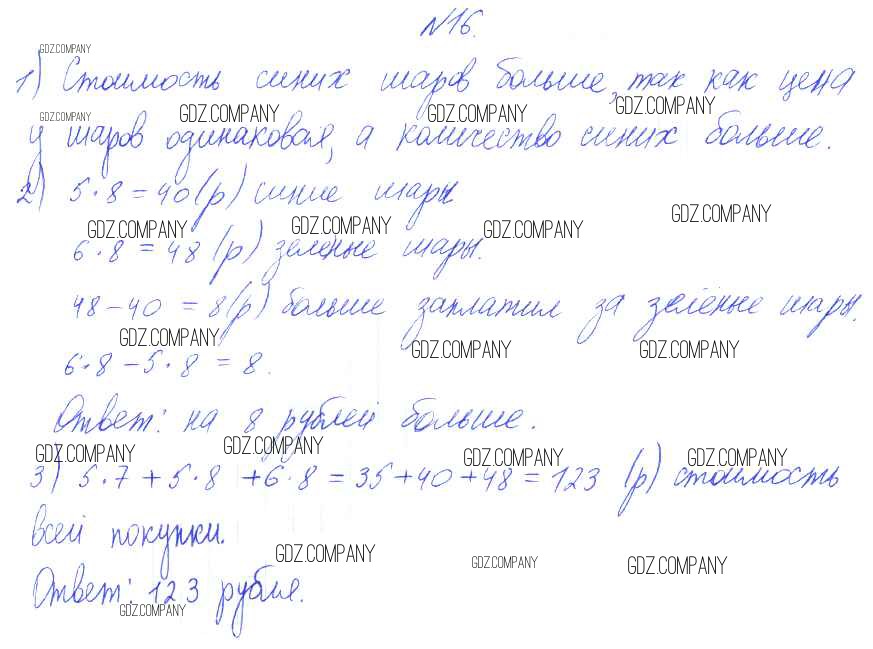 №16.
GDZ.COMPANY
1) Стоимость синих шаров больше, так как цена
GDZ.COMPANY GDZ.COMPANY GDZ.COMPANY GDZ.COMPANY
у шаров одинаковая, а количество синих больше.
2) 5·8=40(р) синие шары
GDZ.COMPANY GDZ.COMPANY GDZ.COMPANY GDZ.COMPANY
6·8=48(р) зеленые шары.
48-40=8(р) больше заплатил за зелёные шары.
GDZ.COMPANY GDZ.COMPANY GDZ.COMPANY
6·8-5·8=8.
Ответ: на 8 рублей больше.
GDZ.COMPANY GDZ.COMPANY GDZ.COMPANY GDZ.COMPANY
3) 5·7+5·8+6·8=35+40+48=123 (р) стоимость
всей покупки.
GDZ.COMPANY GDZ.COMPANY GDZ.COMPANY
Ответ: 123 рубля.
GDZ.COMPANY